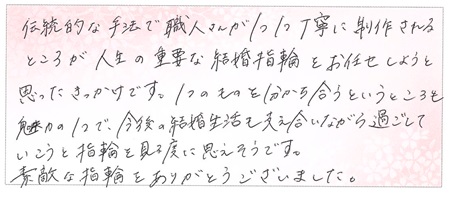 伝統的な手法で職人さんが1つ1つ丁寧に制作される
ところが人生の重要な結婚指輪をお任せしようと
思ったきっかけです。1つのものを分かち合うというところも
魅力の1つで、今後の結婚生活も支え合いながら過ごして
いこうと指輪を見る度に思えそうです。
素敵な指輪をありがとうございました。